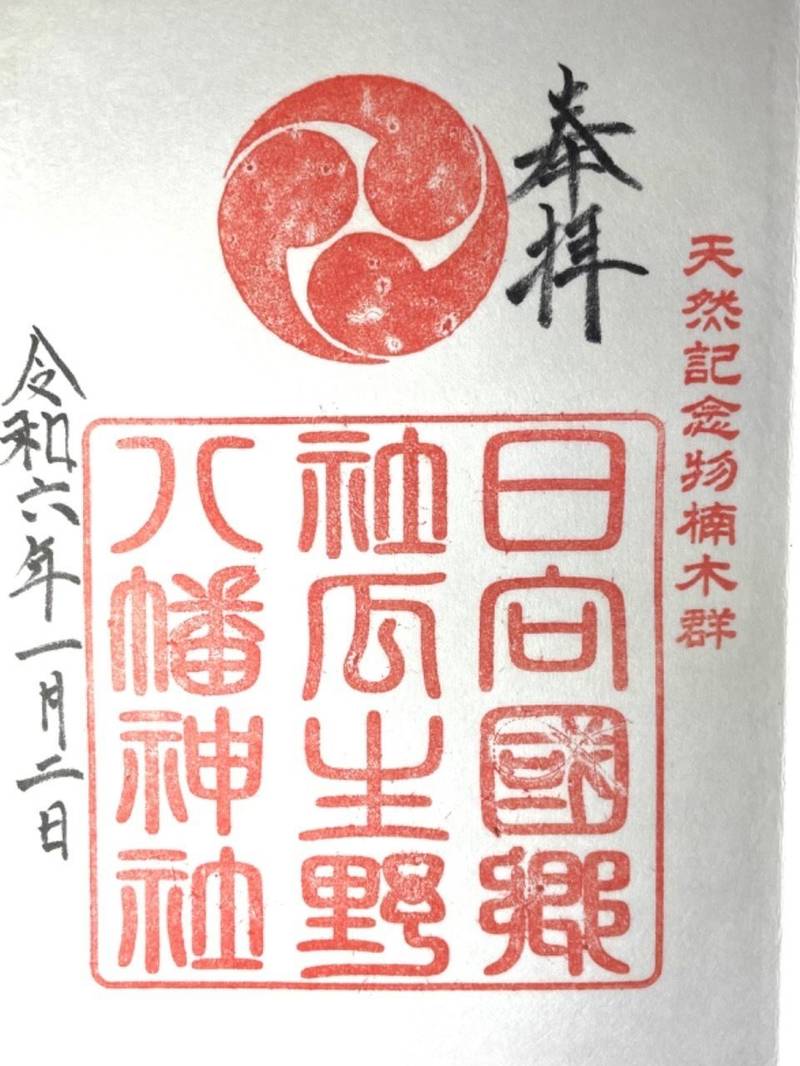 天然記念物楠木群
奉拝
日向國郷
社瓜生野
八幡神社
令和六年一月二日